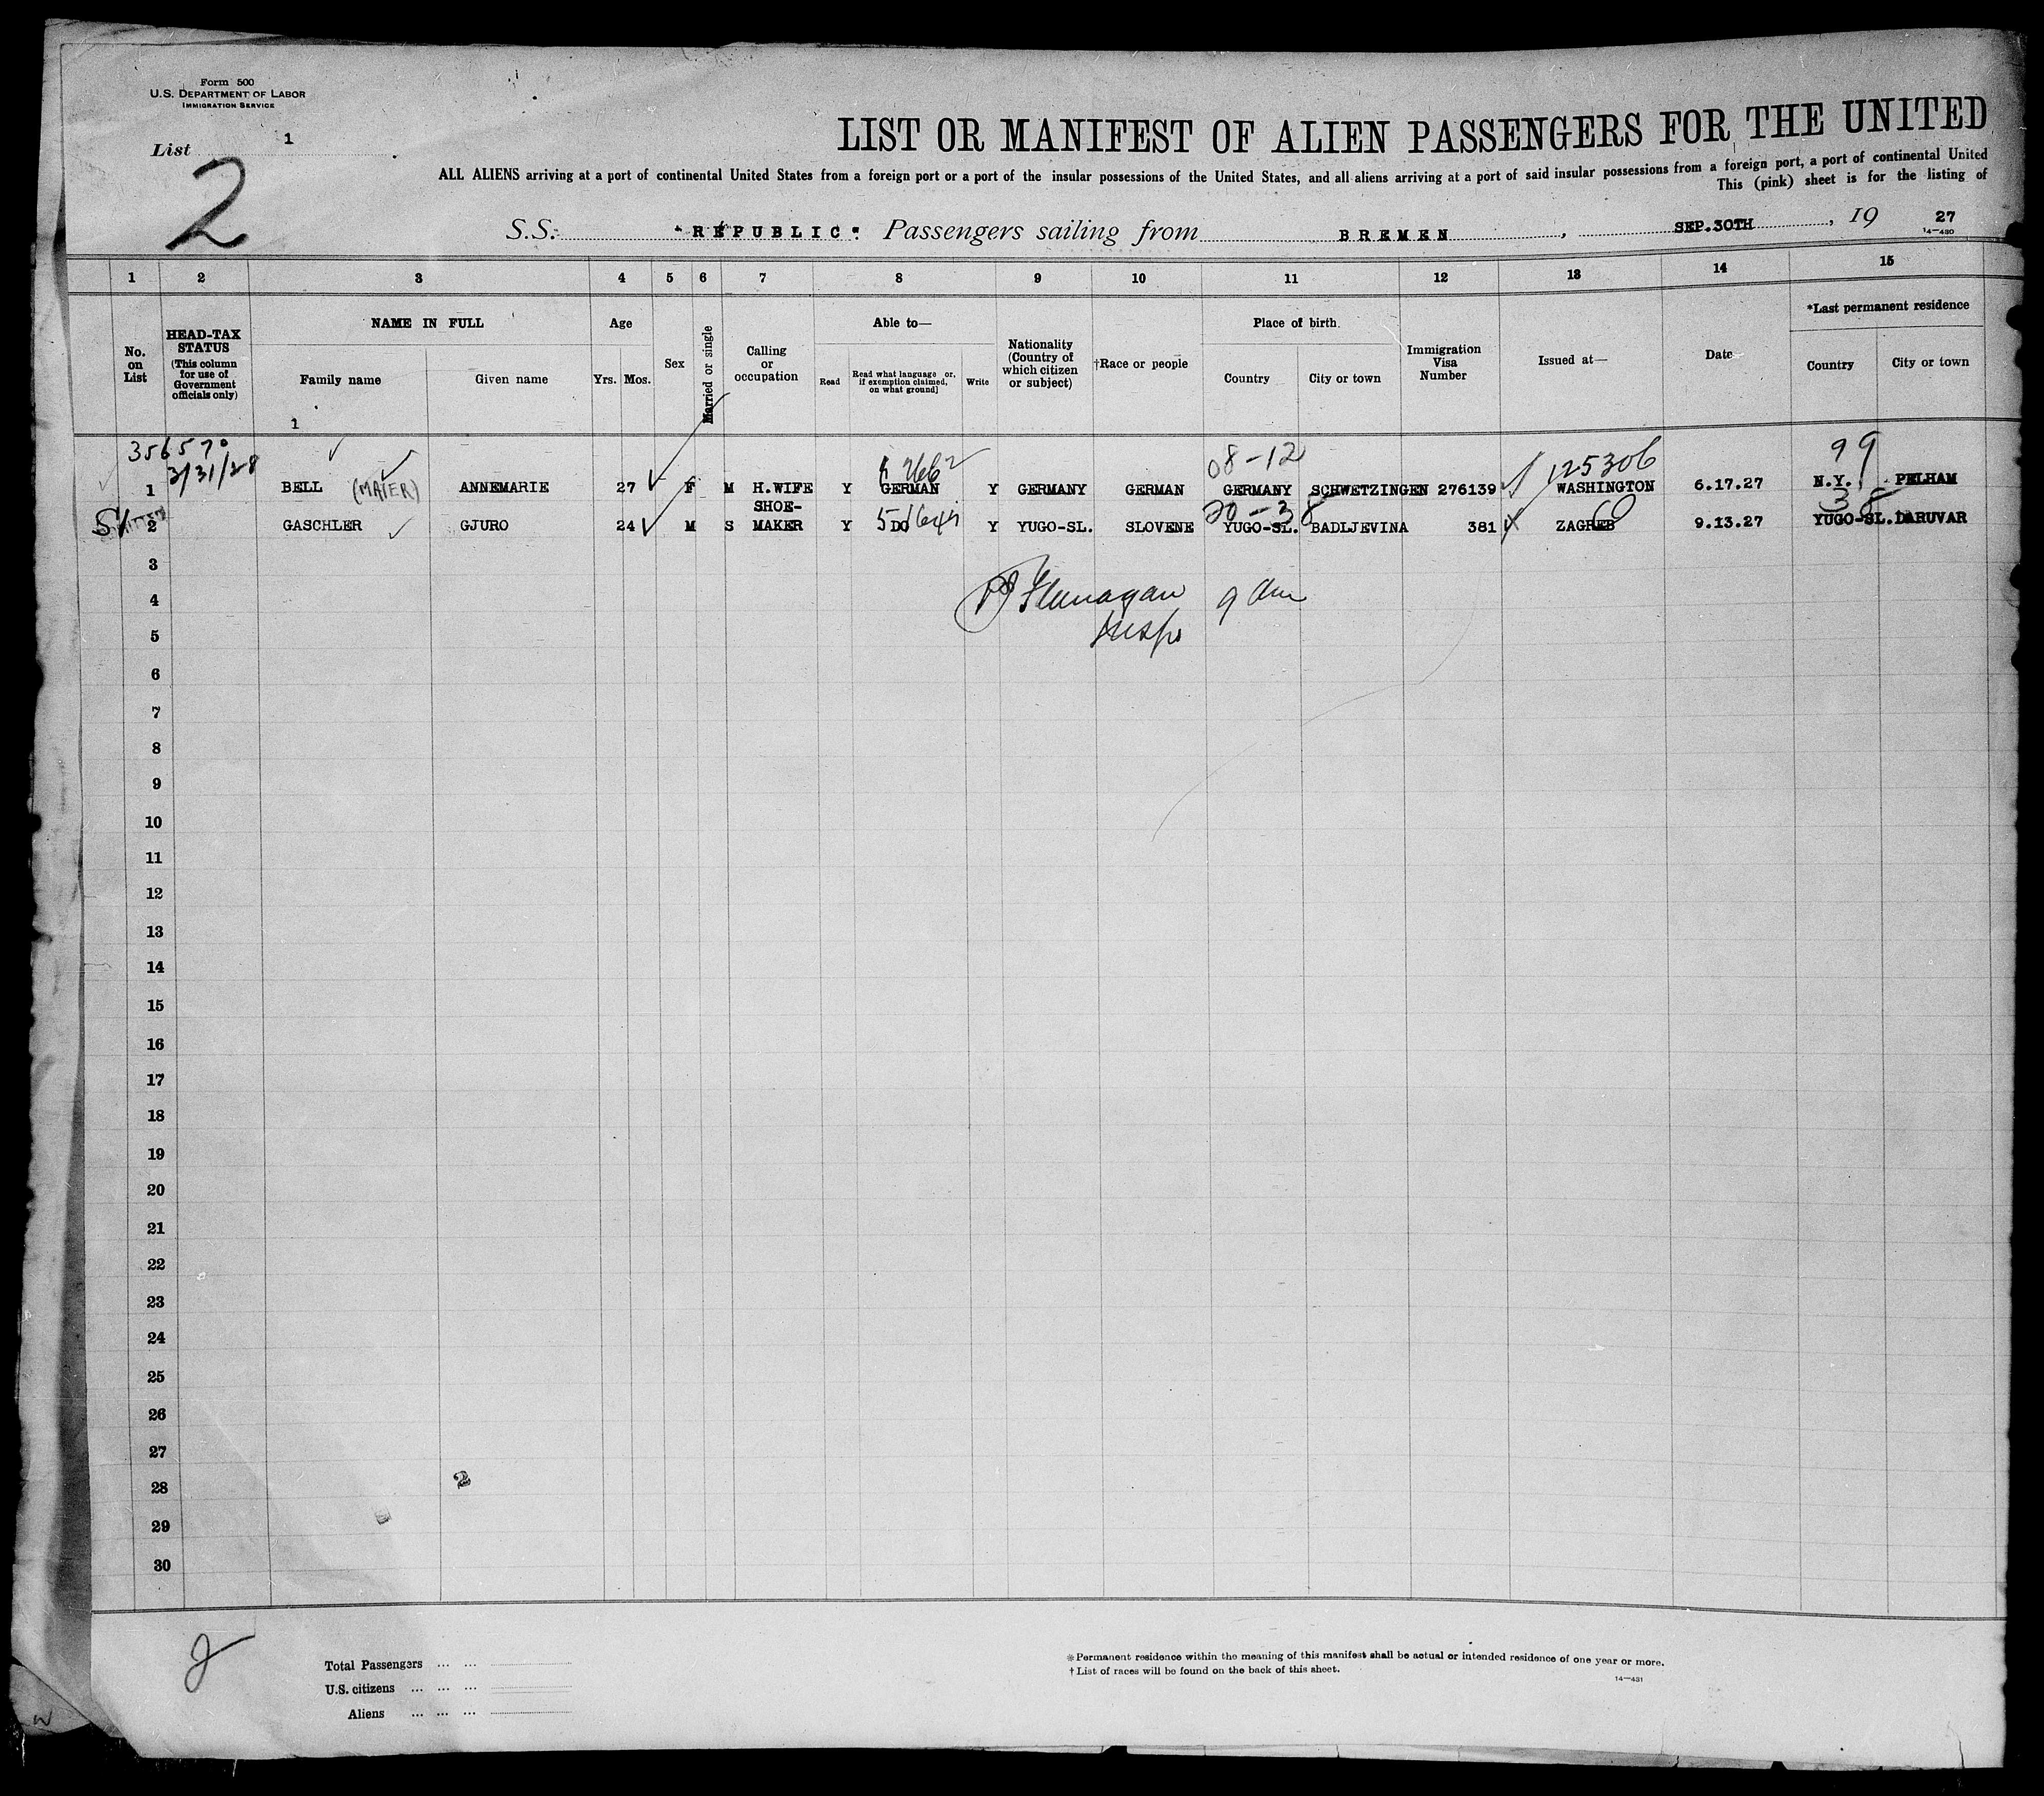 Form 500
U.S. DEPARTMENT OF LABOR
IMMIGRATION SERVICE
List 1
2
LIST OR MANIFEST OF ALIEN PASSENGERS FOR THE UNITED
ALL ALIENS arriving at a port of continental United States from a foreign port or a port of the insular possessions of the United States, and all aliens arriving at a port of said insular possessions from a foreign port, a port of continental United
This (pink) sheet is for the listing of
S.S. "REPUBLIC". Passengers sailing from BREMEN, SEP.30TH, 19 27
14—430
1 2 3 4 5 6 7 8 9 10 11 12 13 14 15
No. on List
HEAD-TAX STATUS
(This column for use of Government officials only)
NAME IN FULL
Family name
Given name
Age
Yrs. Mos.
Sex
Married or single
Calling or occupation
Able to—
Read
Read what language or, if exemption claimed, on what ground]
Write
Nationality (Country of which citizen or subject)
†Race or people
Place of birth
Country
City or town
Immigration Visa Number
Issued at—
Date
*Last permanent residence
Country
City or town
1
356570
3/31/28
08-12
125306
99
1 BELL (MAIER) ANNEMARIE 27 F M H.WIFE Y GERMAN Y GERMANY GERMAN GERMANY SCHWETZINGEN 276139 WASHINGTON 6.17.27 N.Y. PELHAM
20-38
38
SI 2 GASCHLER GJURO 24 M S SHOE-
MAKER Y DO Y YUGO-SL. SLOVENE YUGO-SL. BADLJEVINA 381 ZAGREB 9.13.27 YUGO-SL. DARUVAR
3
4 Flanagan
5 Insp
6
7
8
9
10
11
12
13
14
15
16
17
18
19
20
21
22
23
24
25
26
27
28 2
29
30
2
Total Passengers ... ...
U.S. citizens ... ... ...
Aliens ... ... ...
*Permanent residence within the meaning of this manifest shall be actual or intended residence of one year or more.
†List of races will be found on the back of this sheet.
14—431